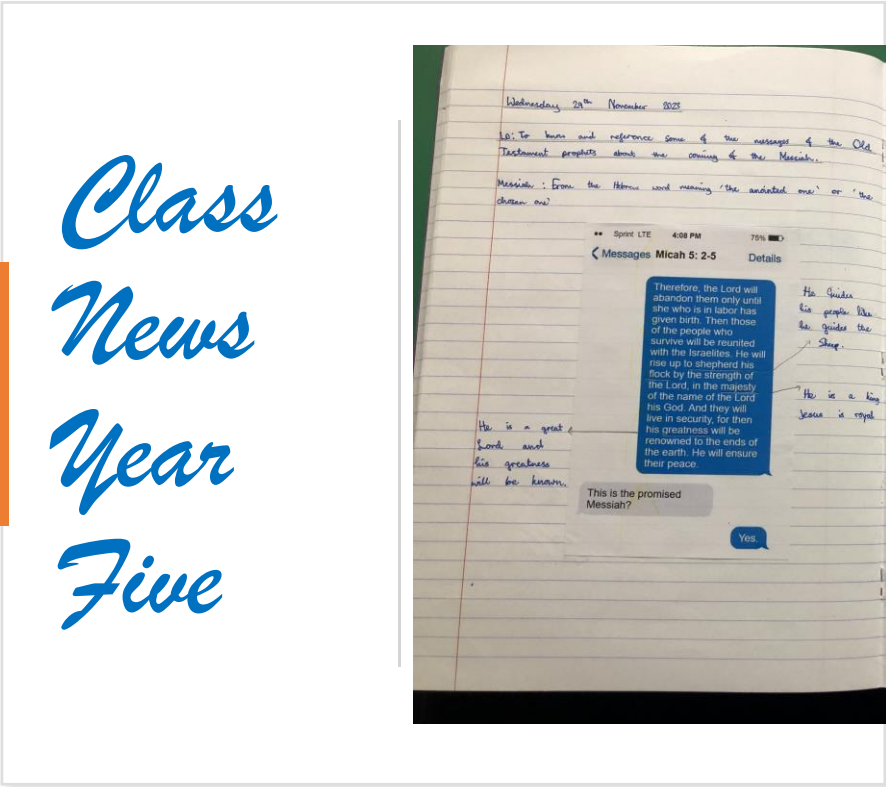 Class
News
Year
Five
Wednesday 29th November 2023
LO: To know and reference some of the messages of the Old
Testament prophets about the coming of the Messiah.
Messiah : From the Hebrew word meaning 'the anointed one' or 'the
chosen one'
Sprint LTE 4:08 PM 75%
Messages Micah 5: 2-5 Details
Therefore, the Lord will
abandon them only until
she who is in labor has
given birth. Then those
of the people who
survive will be reunited
with the Israelites. He will
rise up to shepherd his
flock by the strength of
the Lord, in the majesty
of the name of the Lord
his God. And they will
live in security, for then
his greatness will be
renowned to the ends of
the earth. He will ensure
their peace.
This is the promised
Messiah?
Yes.
He guides
his people like
he guides the
sheep.
He is a king
Jesus is royal
He is a great
Lord and
his greatness
will be known.